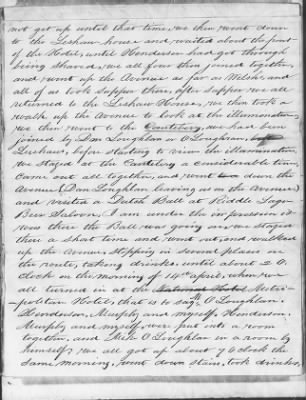 not get up until that time, we then went down
to the Lichau house and waited about the front
of the Hotel until Henderson had got through
being shaved, we all four then joined together,
and went up the Avenue as far as Welch's and
all of us took supper there, after supper we all
returned to the Lichau House, we then took a
walk up the Avenue to look at the illumination,
we then went to the Canterbury, we had been
joined by Dan Loughlan O'Loughlan,
Lichau, before starting to view the illumination
we stayed at the Canterbury a considerable time,
Came out all together, and went down the
Avenue (Dan Loughlan leaving us on the Avenue)
and visited a Dutch Ball at Riddle Lager
Beer Saloon, I am under the impression it
was there the Ball was going on, we stayed
there a short time and went out, and walked
up the Avenue stopping in several places on
the route, taking drinks until about 2 O.
clock on the morning of 14th April, when we
all turned in at the National Hotel Metro-
politan Hotel, that is to say O'Loughlan,
Henderson, Murphy, and myself. Henderson,
Murphy and myself were put into a room
together, and Mike O'Loughlan in a room by
himself; we all got up about 9 O clock the
same morning, went down stairs, took drinks,